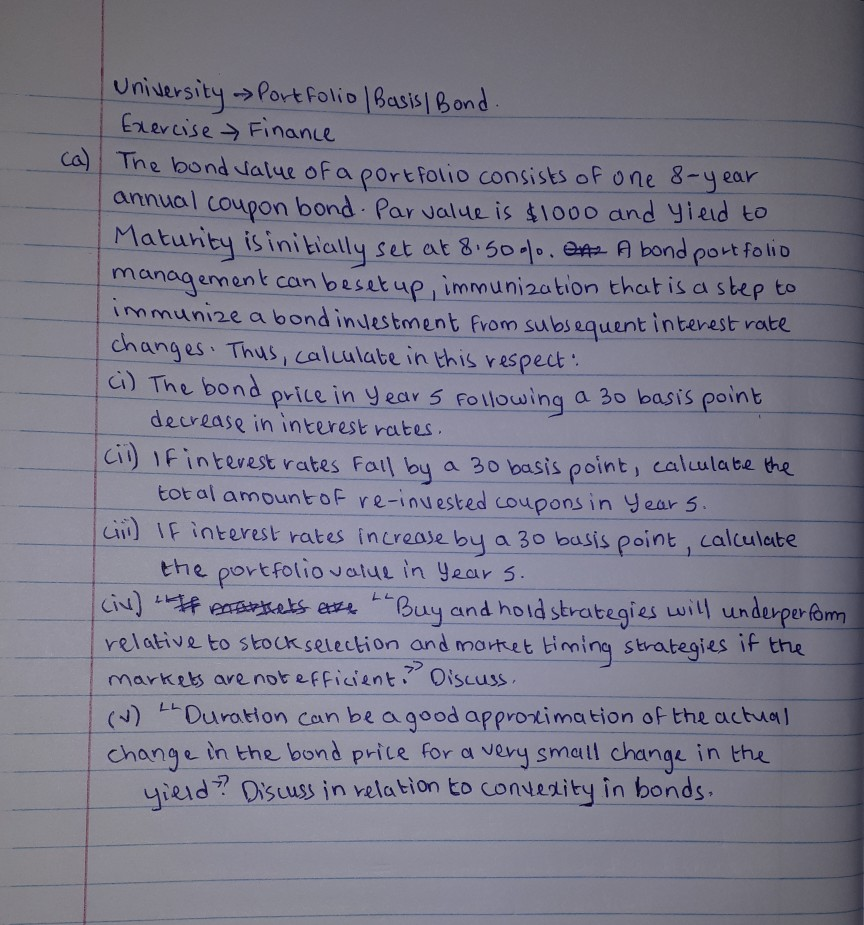 University → Portfolio | Basis | Bond.
Exercise → Finance
(a) The bond value of a portfolio consists of one 8-year
annual coupon bond. Par value is $1000 and yield to
Maturity is initially set at 8.50%. One A bond portfolio
management can be set up, immunization that is a step to
immunize a bond investment from subsequent interest rate
changes. Thus, calculate in this respect:
(i) The bond price in year 5 following a 30 basis point
decrease in interest rates.
(ii) If interest rates fall by a 30 basis point, calculate the
total amount of re-invested coupons in year 5.
(iii) If interest rates increase by a 30 basis point, calculate
the portfolio value in year 5.
(iv) "If markets are "Buy and hold strategies will underperform
relative to stock selection and market timing strategies if the
markets are not efficient." Discuss.
(v) "Duration can be a good approximation of the actual
change in the bond price for a very small change in the
yield"? Discuss in relation to convexity in bonds.